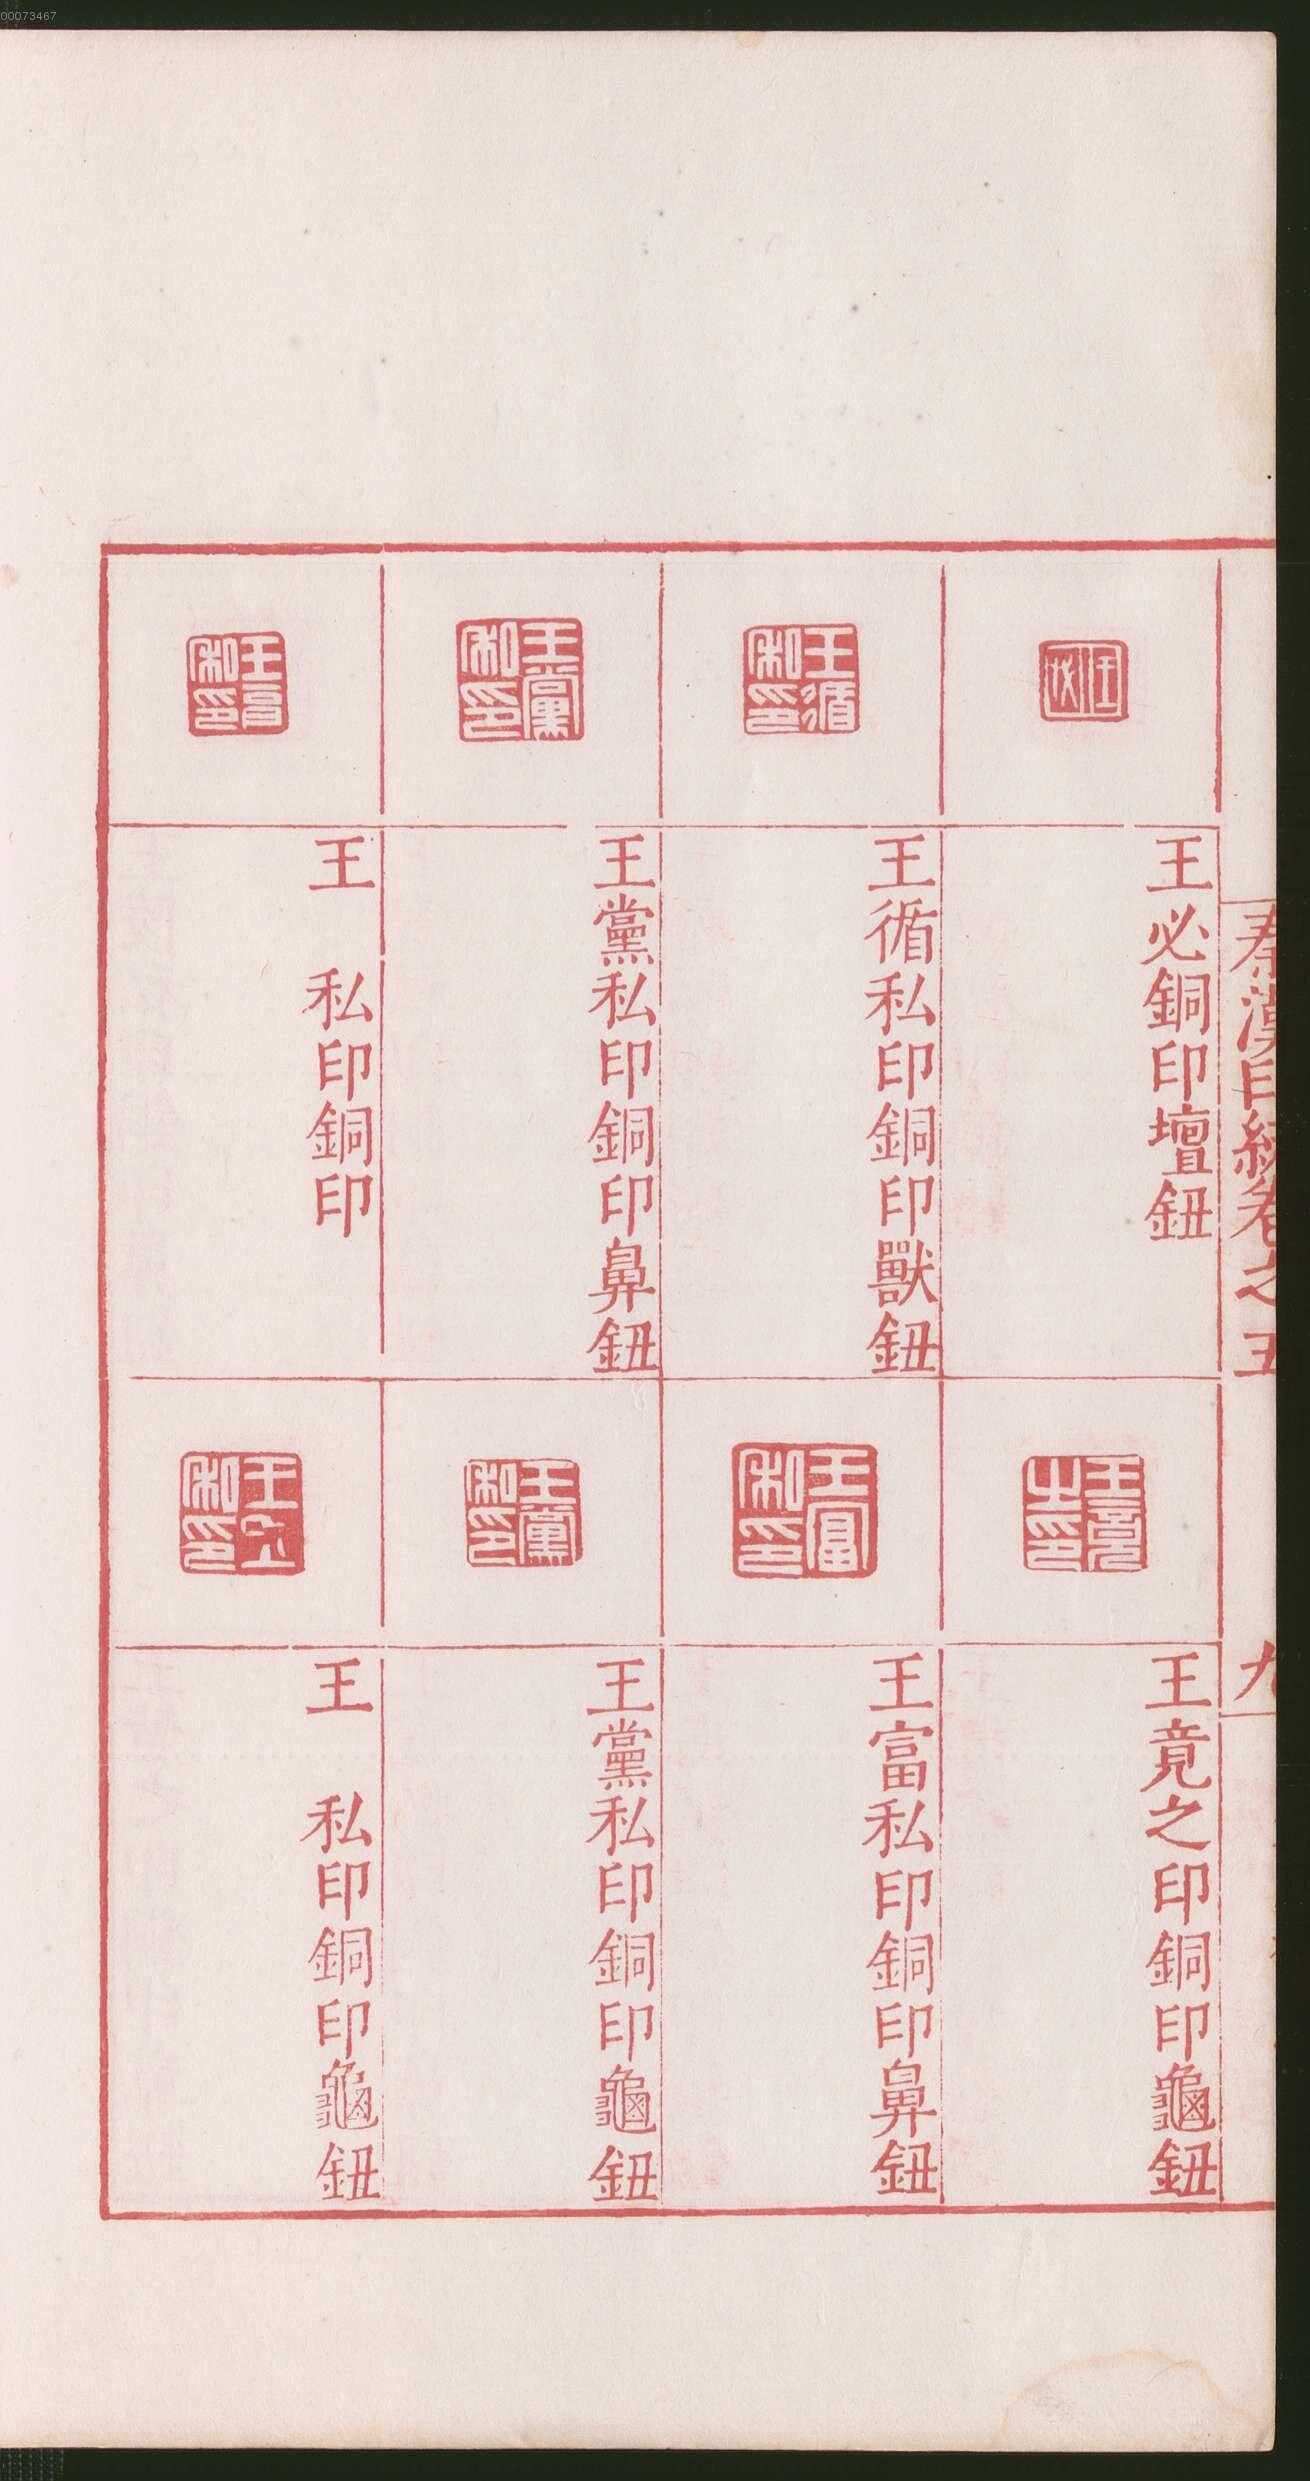 00073467
秦漢印統卷之五
九
王必
王必銅印壇鈕
王循私印
王循私印銅印獸鈕
王黨私印
王黨私印銅印鼻鈕
王
私印
王　私印銅印
王竟之印
王竟之印銅印龜鈕
王富私印
王富私印銅印鼻鈕
王黨私印
王黨私印銅印龜鈕
王
私印
王　私印銅印龜鈕